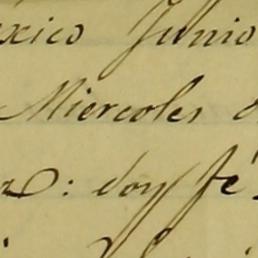 éxico Junio
Miercoles
: doy fé